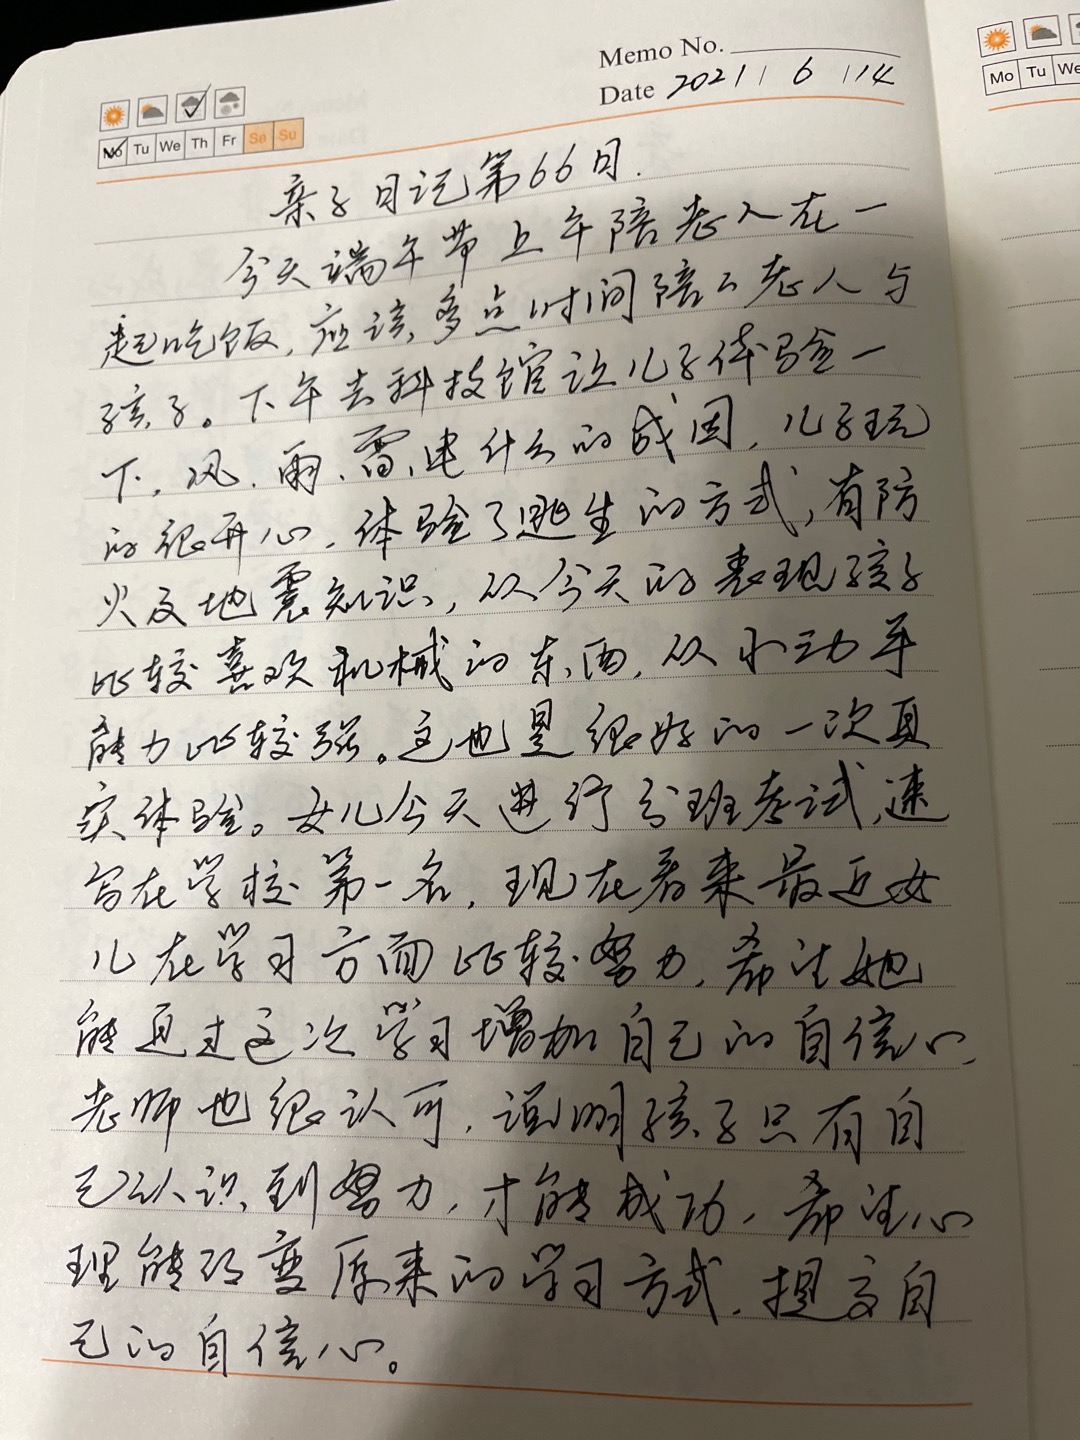 Memo No.
Date 2021 / 6 / 14
Mo Tu We Th Fr Sa Su
Mo Tu We
亲子日记第66日.
今天端午节上午陪老人在一
起吃饭,应该多点时间陪人老人与
孩子。下午去科技馆让儿子体验一
下,风、雨、雷、电什么的成因,儿子玩
的很开心,体验了逃生的方式,有防
火及地震知识,从今天的表现孩子
比较喜欢机械的东西,从小动手
能力比较强。这也是很好的一次真
实体验。女儿今天进行分班考试,速
写在学校第一名,现在看来最近女
儿在学习方面比较努力,希望她
能通过这次学习增加自己的自信心,
老师也很认可,说明孩子只有自
己认识到努力,才能成功,希望心
理能改变原来的学习方式,提高自
己的自信心。